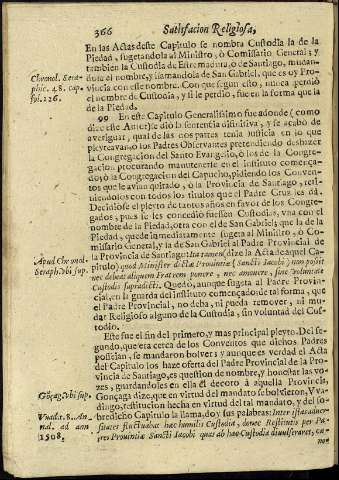 366 Satisfacion Religiosa,
En las Actas deste Capitulo se nombra Custodia la de la
Piedad, sugetandola al Ministro, ò Comissario General; y
tambien la Custodia de Estremadura, ò de Santiago, mudan-
Chronol. Sera-
phic. 48. cap.
fol. 226.
dole el nombre, y llamandola de San Gabriel, que es oy Pro-
vincia con esse nombre. Con que segun esto, nunca perdiò
el nombre de Custodia, y si le perdio, fue en la forma que la
de la Piedad.
99 En este Capitulo Generalissimo fue adonde (como
dize este Autor) se diò la sentencia difinitiva, y se acabò de
averiguar, qual de las dos partes tenia Justicia en lo que
pleyteavan, ò los Padres Observantes pretendiendo deshazer
la Congregacion del Santo Evangelio, ò los de la Congre-
gacion procurando mantenerse en el instituto comença-
do, ò la Congregacion del Capucho, pidiendo los Conven-
tos que le avian quitado, ò la Provincia de Santiago, resi-
tiendolos con todos los titulos que el Padre Cruz les dà.
Decidiòse el pleyto de tantos años en favor de los Congre-
gados, pues se les concediò fuessen Custodias, vna con el
nombre de la Piedad, otra con el de San Gabriel; que la de
la Piedad, quede immediatamente sugeta al Ministro, ò Co-
missario General, y la de San Gabriel al Padre Provincial de
Apud Chronol.
Seraph. vbi sup.
la Provincia de Santiago: Ita tamen (dize la Acta de aquel Ca-
pitulo) quod Minister dictæ Provinciæ (Sancti Jacobi) non possit
nec debeat aliquem Fratrem ponere, nec amovere, sine voluntate
Custodis supradicti. Quedò, aunque sugeta al Padre Provin-
cial, en la guarda del instituto començado de tal forma, que
el Padre Provincial, no deba, ni pueda remover, ni mu-
dar Religioso alguno de la Custodia, sin voluntad del Cus-
todio.
Este fue el fin del primero, y mas principal pleyto. Del se-
gundo, que era cerca de los Conventos que dichos Padres
posseian, se mandaron bolver; y aunque es verdad el Acta
del Capitulo los haze oferta del Padre Provincial de la Pro-
vincia de Santiago, es question de nombre, y honestar las vo-
zes, guardandoles en ella el decoro à aquella Provincia,
Gonçag. vbi sup.
Gonçaga dize, que en virtud del mandato se bolvieron, y Vva-
dingo, restitucion hecha en virtud del tal mandato, y del so-
Vvad. t. 8. An-
nal. ad ann.
1508.
bredicho Capitulo la llama, doy sus palabras: Inter istas adver-
sitates fluctuabat hæc humilis Custodia, donec Restituto per Pa-
tres Provinciæ Sancti Jacobi quas ab hac Custodia divulserant, ca-
no-